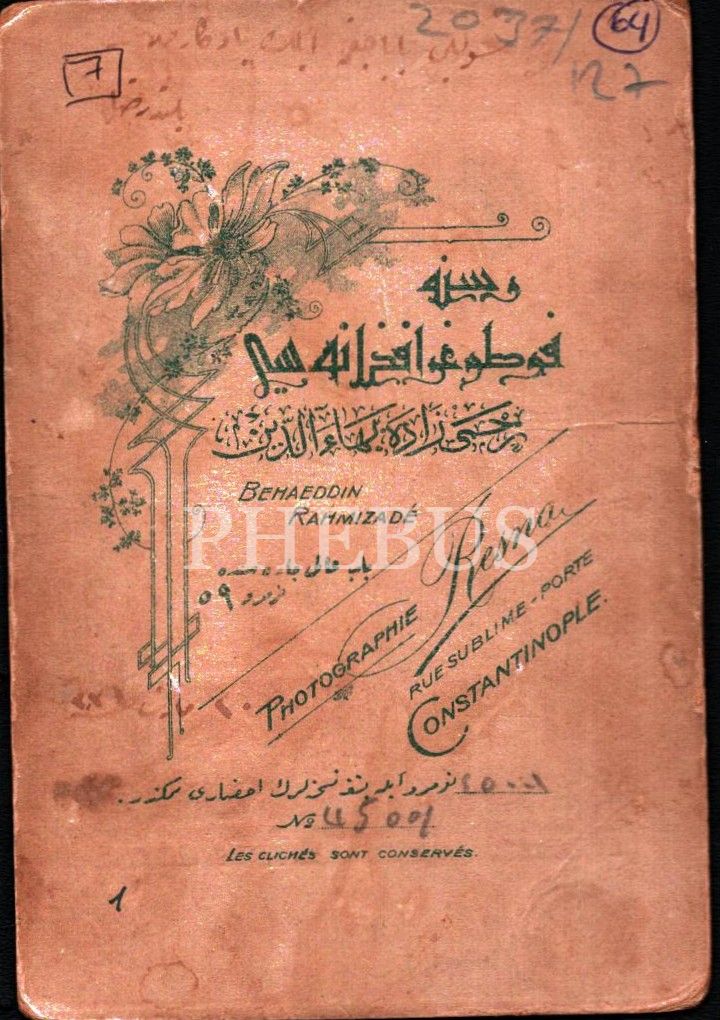 2037/
64
7
127
رسنه
فوطوغرافخانه سی
رحمی زاده بهاءالدین
BEHAEDDIN
RAHMIZADÉ
باب عالی جاده سنده
نومرو ٥٩
PHOTOGRAPHIE Resna
RUE SUBLIME-PORTE
CONSTANTINOPLE.
PHEBUS
٤٥٠٠١ نومرو ایله نسخه لرك احضاری ممکندر.
№ 45001
LES CLICHÉS SONT CONSERVÉS.
1